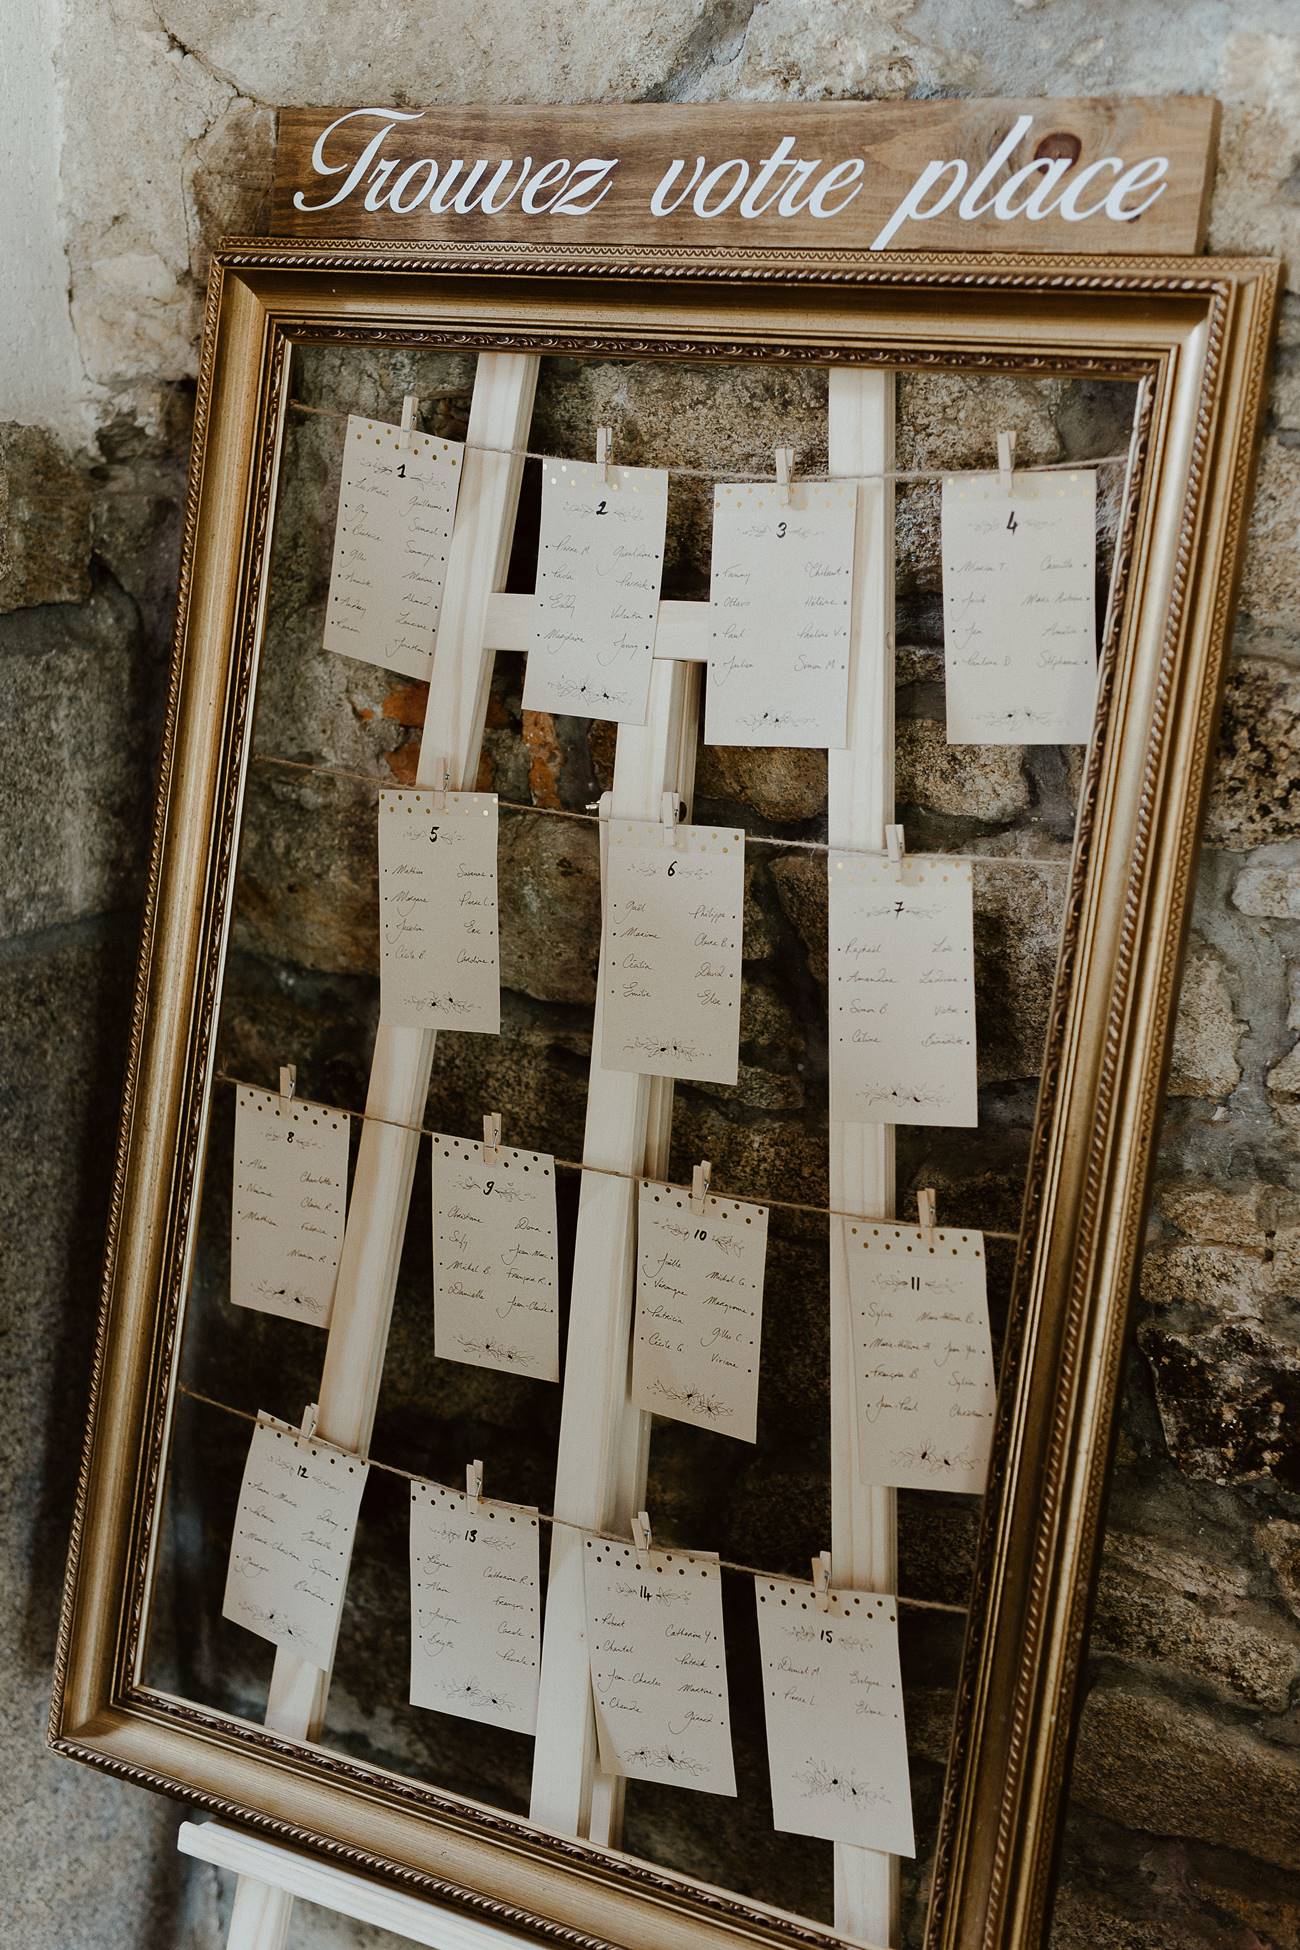 Trouvez votre place
1
Guillaume
Guy Samuel
Béatrice
Gilles Maxime
Annick Ahmed
Audrey
Jonathan
2
Pierre M. Géraldine
Paola Patrick
Eddy Valentin
Jenny
3
Fanny Thibaut
Ottavo Hélène
Paul Pauline V.
Julien Simon M.
4
Marion T. Camille
Jacob Marie Antoine
Jen Amélie
Pauline D. Stéphanie
5
Mathieu Susanna
Morgane Pierre L.
Jocelyn Eric
Cécile B. Caroline
6
Gaël Philippe
Maxime Claire B.
Cécilia David
Emilie Elise
7
Raphaël Loïc
Amandine Ludivine
Simon B. Victor
Céline Bénédicte
8
Alan Charlotte
Noémie Claire R.
Matthieu Fabrice
Marion R.
9
Christiane Dona
Sify Jean-Marc
Michel B. François R.
Danielle Jean-Claude
10
Joëlle Michel G.
Véronique Maryvonne
Patricia Gilles C.
Cécile G. Viviane
11
Sylvie Marie-Hélène B.
Marie-Hélène H. Jean-Yves
François B. Sylvia
Jean-Paul Christian
12
Anne-Marie Dany
Patricia Isabelle
Marie-Christine Sylvain
Georges Blandine
13
Régine Catherine R.
Alain François
Josiane Carole
Brigitte Pascale
14
Robert Catherine Y.
Chantal Patrick
Jean-Charles Martine
Claude Gérard
15
Daniel M. Evelyne
Pierre L. Eliane